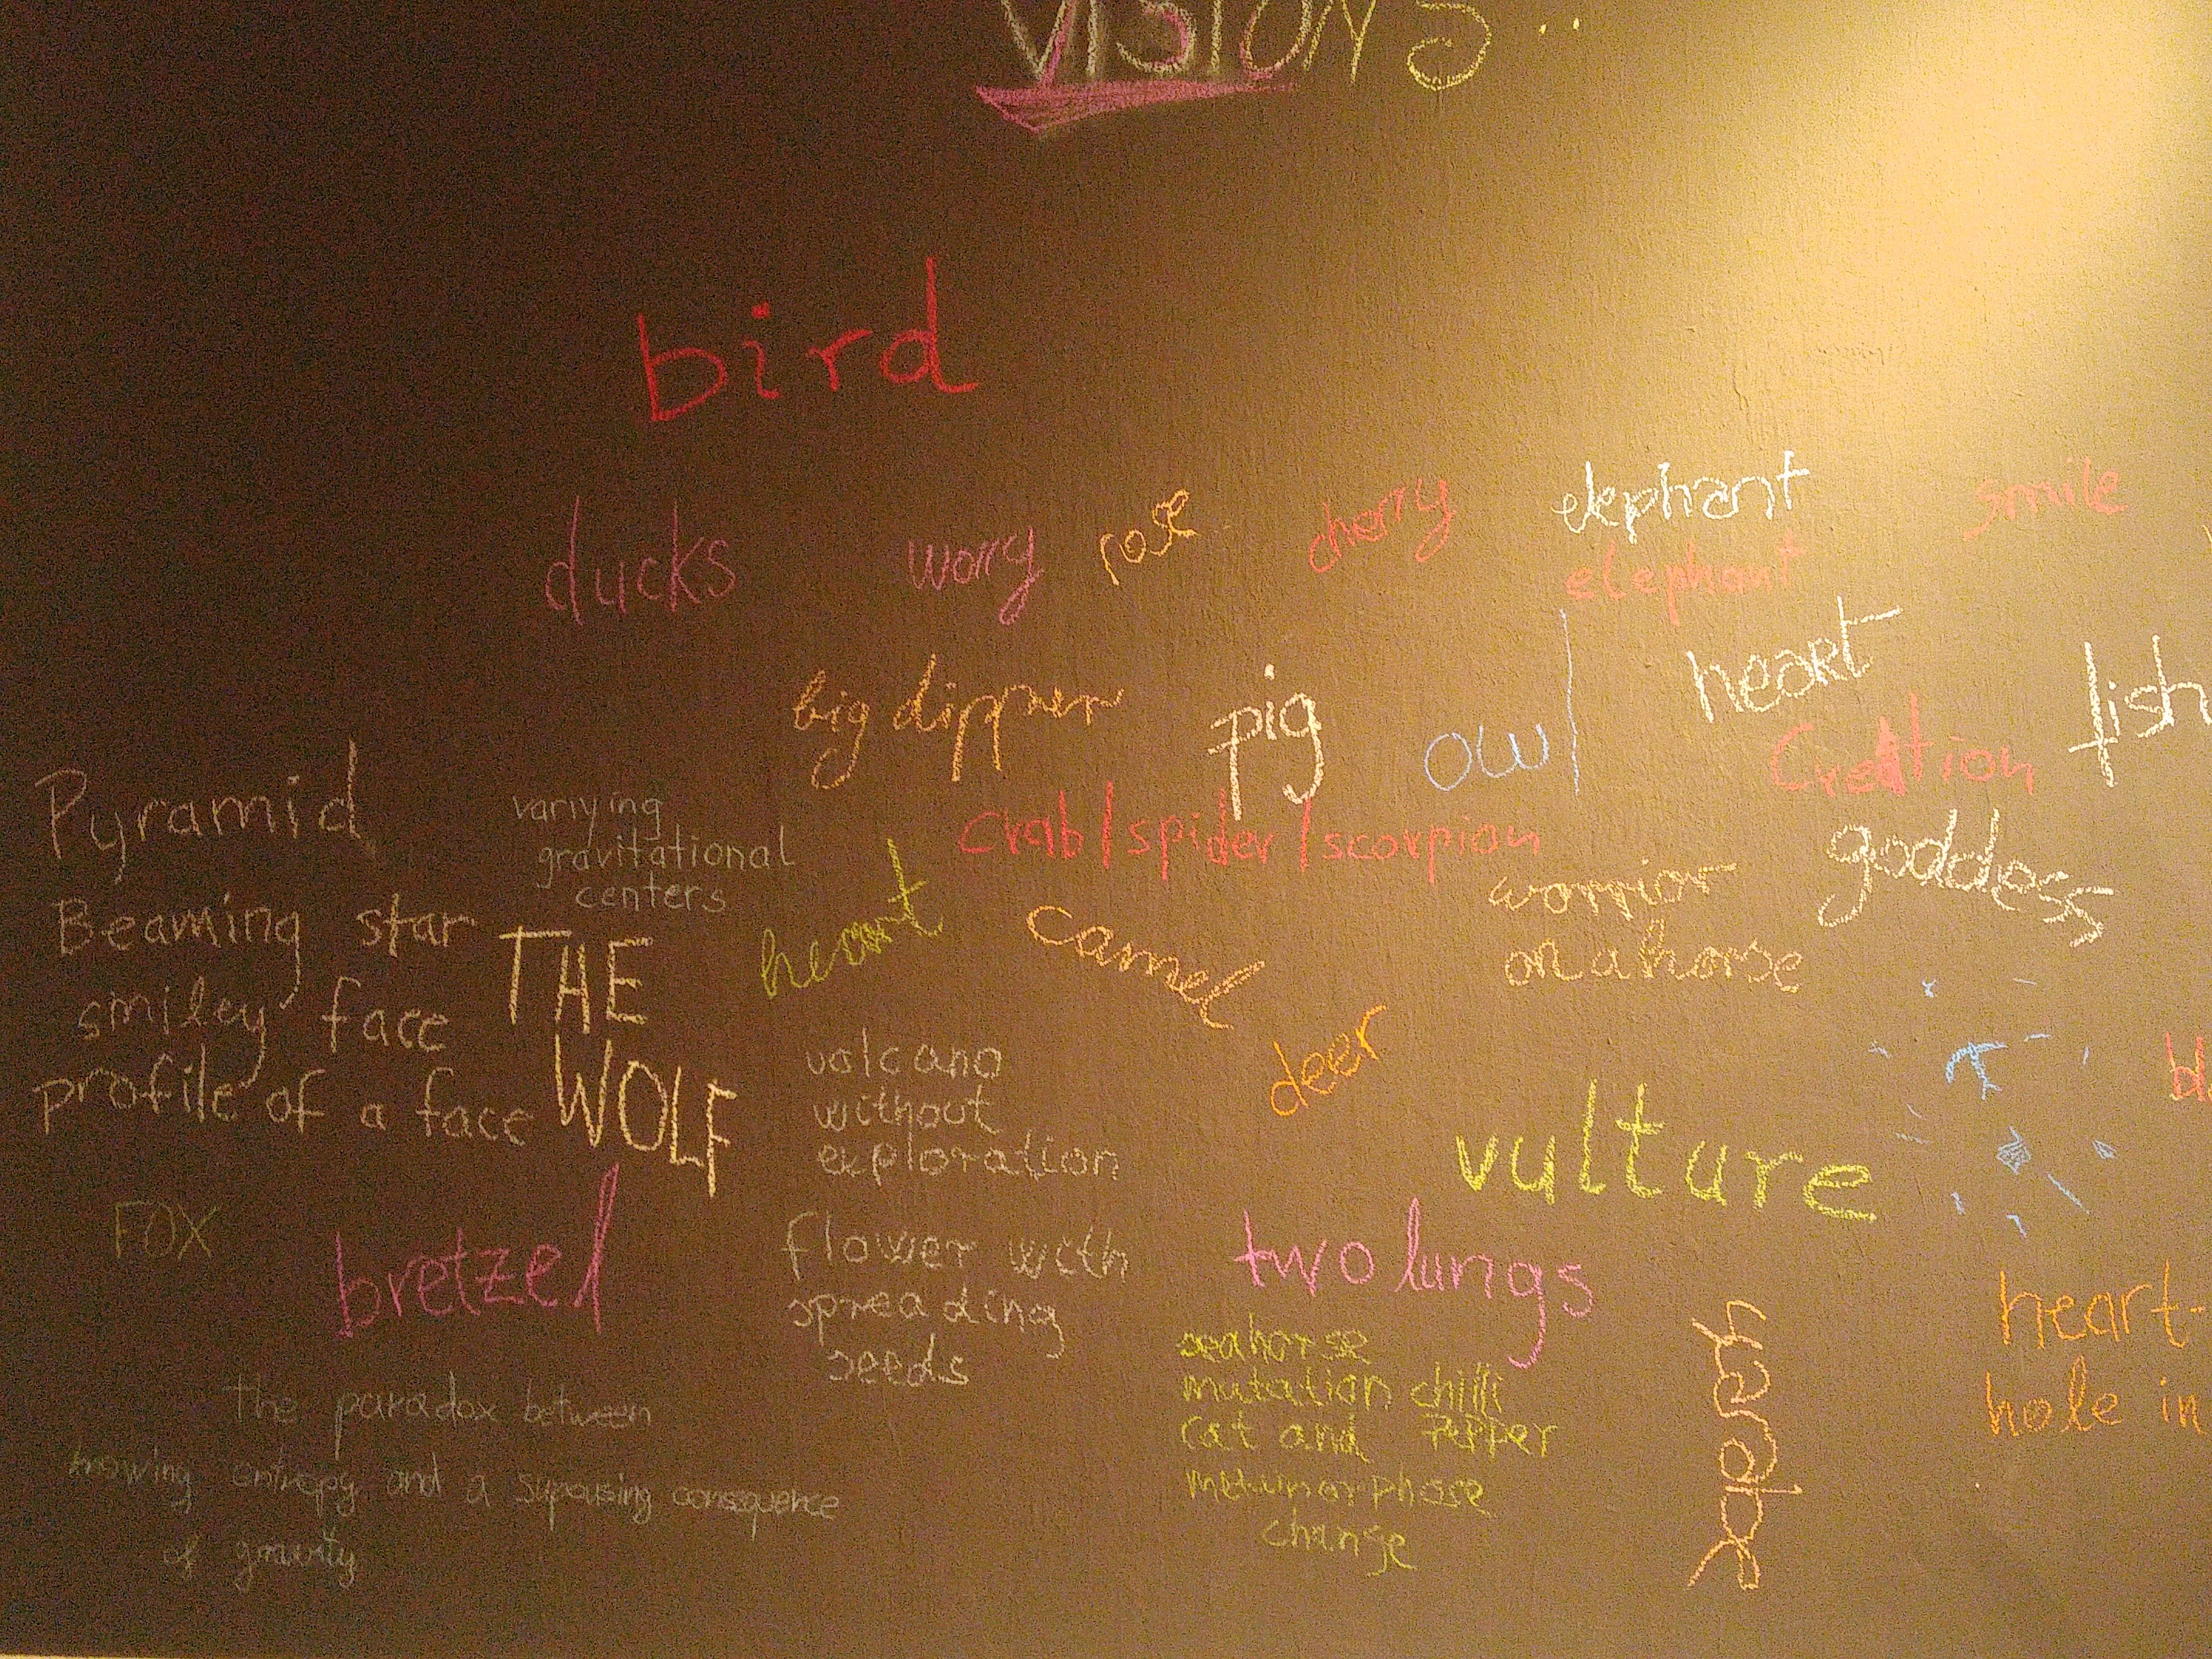 VISIONS..
bird
ducks worry rose cherry elephant smile
elephant
big dipper pig owl heart fish
Creation
Pyramid
varrying
gravitational
centers
crab/spider/scorpion
goddess
warrior
on a horse
Beaming star
smiley face
profile of a face
THE
WOLF
heart
camel
deer
volcano
without
exploration
vulture
FOX
bretzel
flower with
spreading
seeds
two lungs
seahorse
mutation chilli
cat and PEPPER
metumorphose
change
heart-
hole in
the paradox between
knowing entropy and a supousing consequence
of gravity